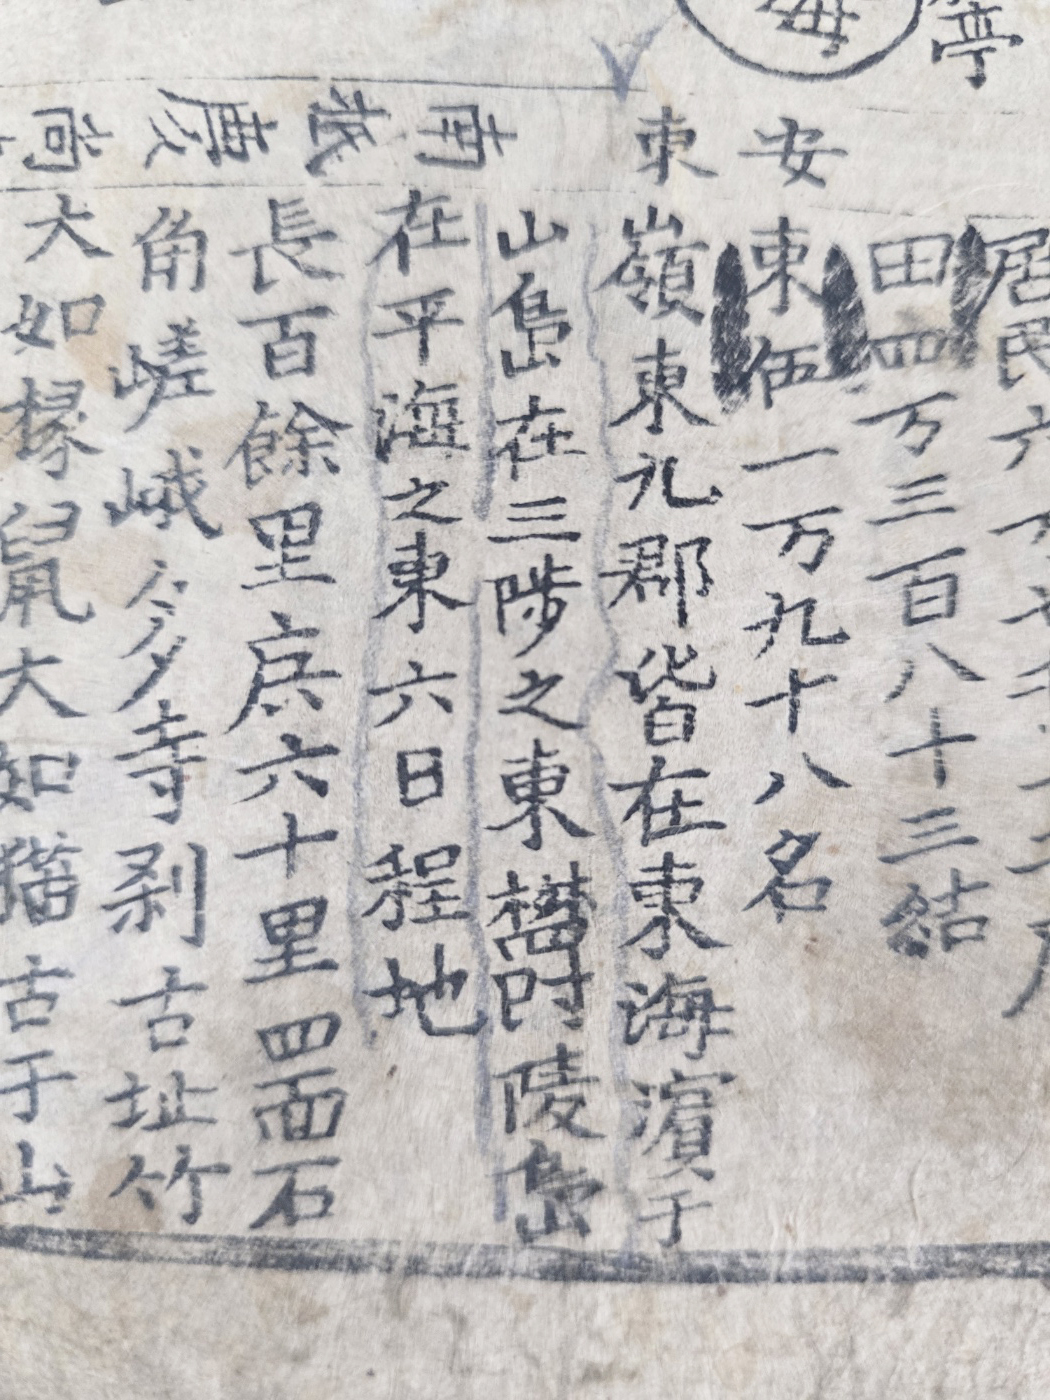 亭
海
居民六万
田四万三百八十三結
安
束伍一万九十八名
東
嶺東九郡皆在東海濱于
山島在三陟之東欝陵島
在平海之東六日程地
長百餘里広六十里四面石
角嵯峨多寺刹古址竹
大如椽鼠大如猫古于山